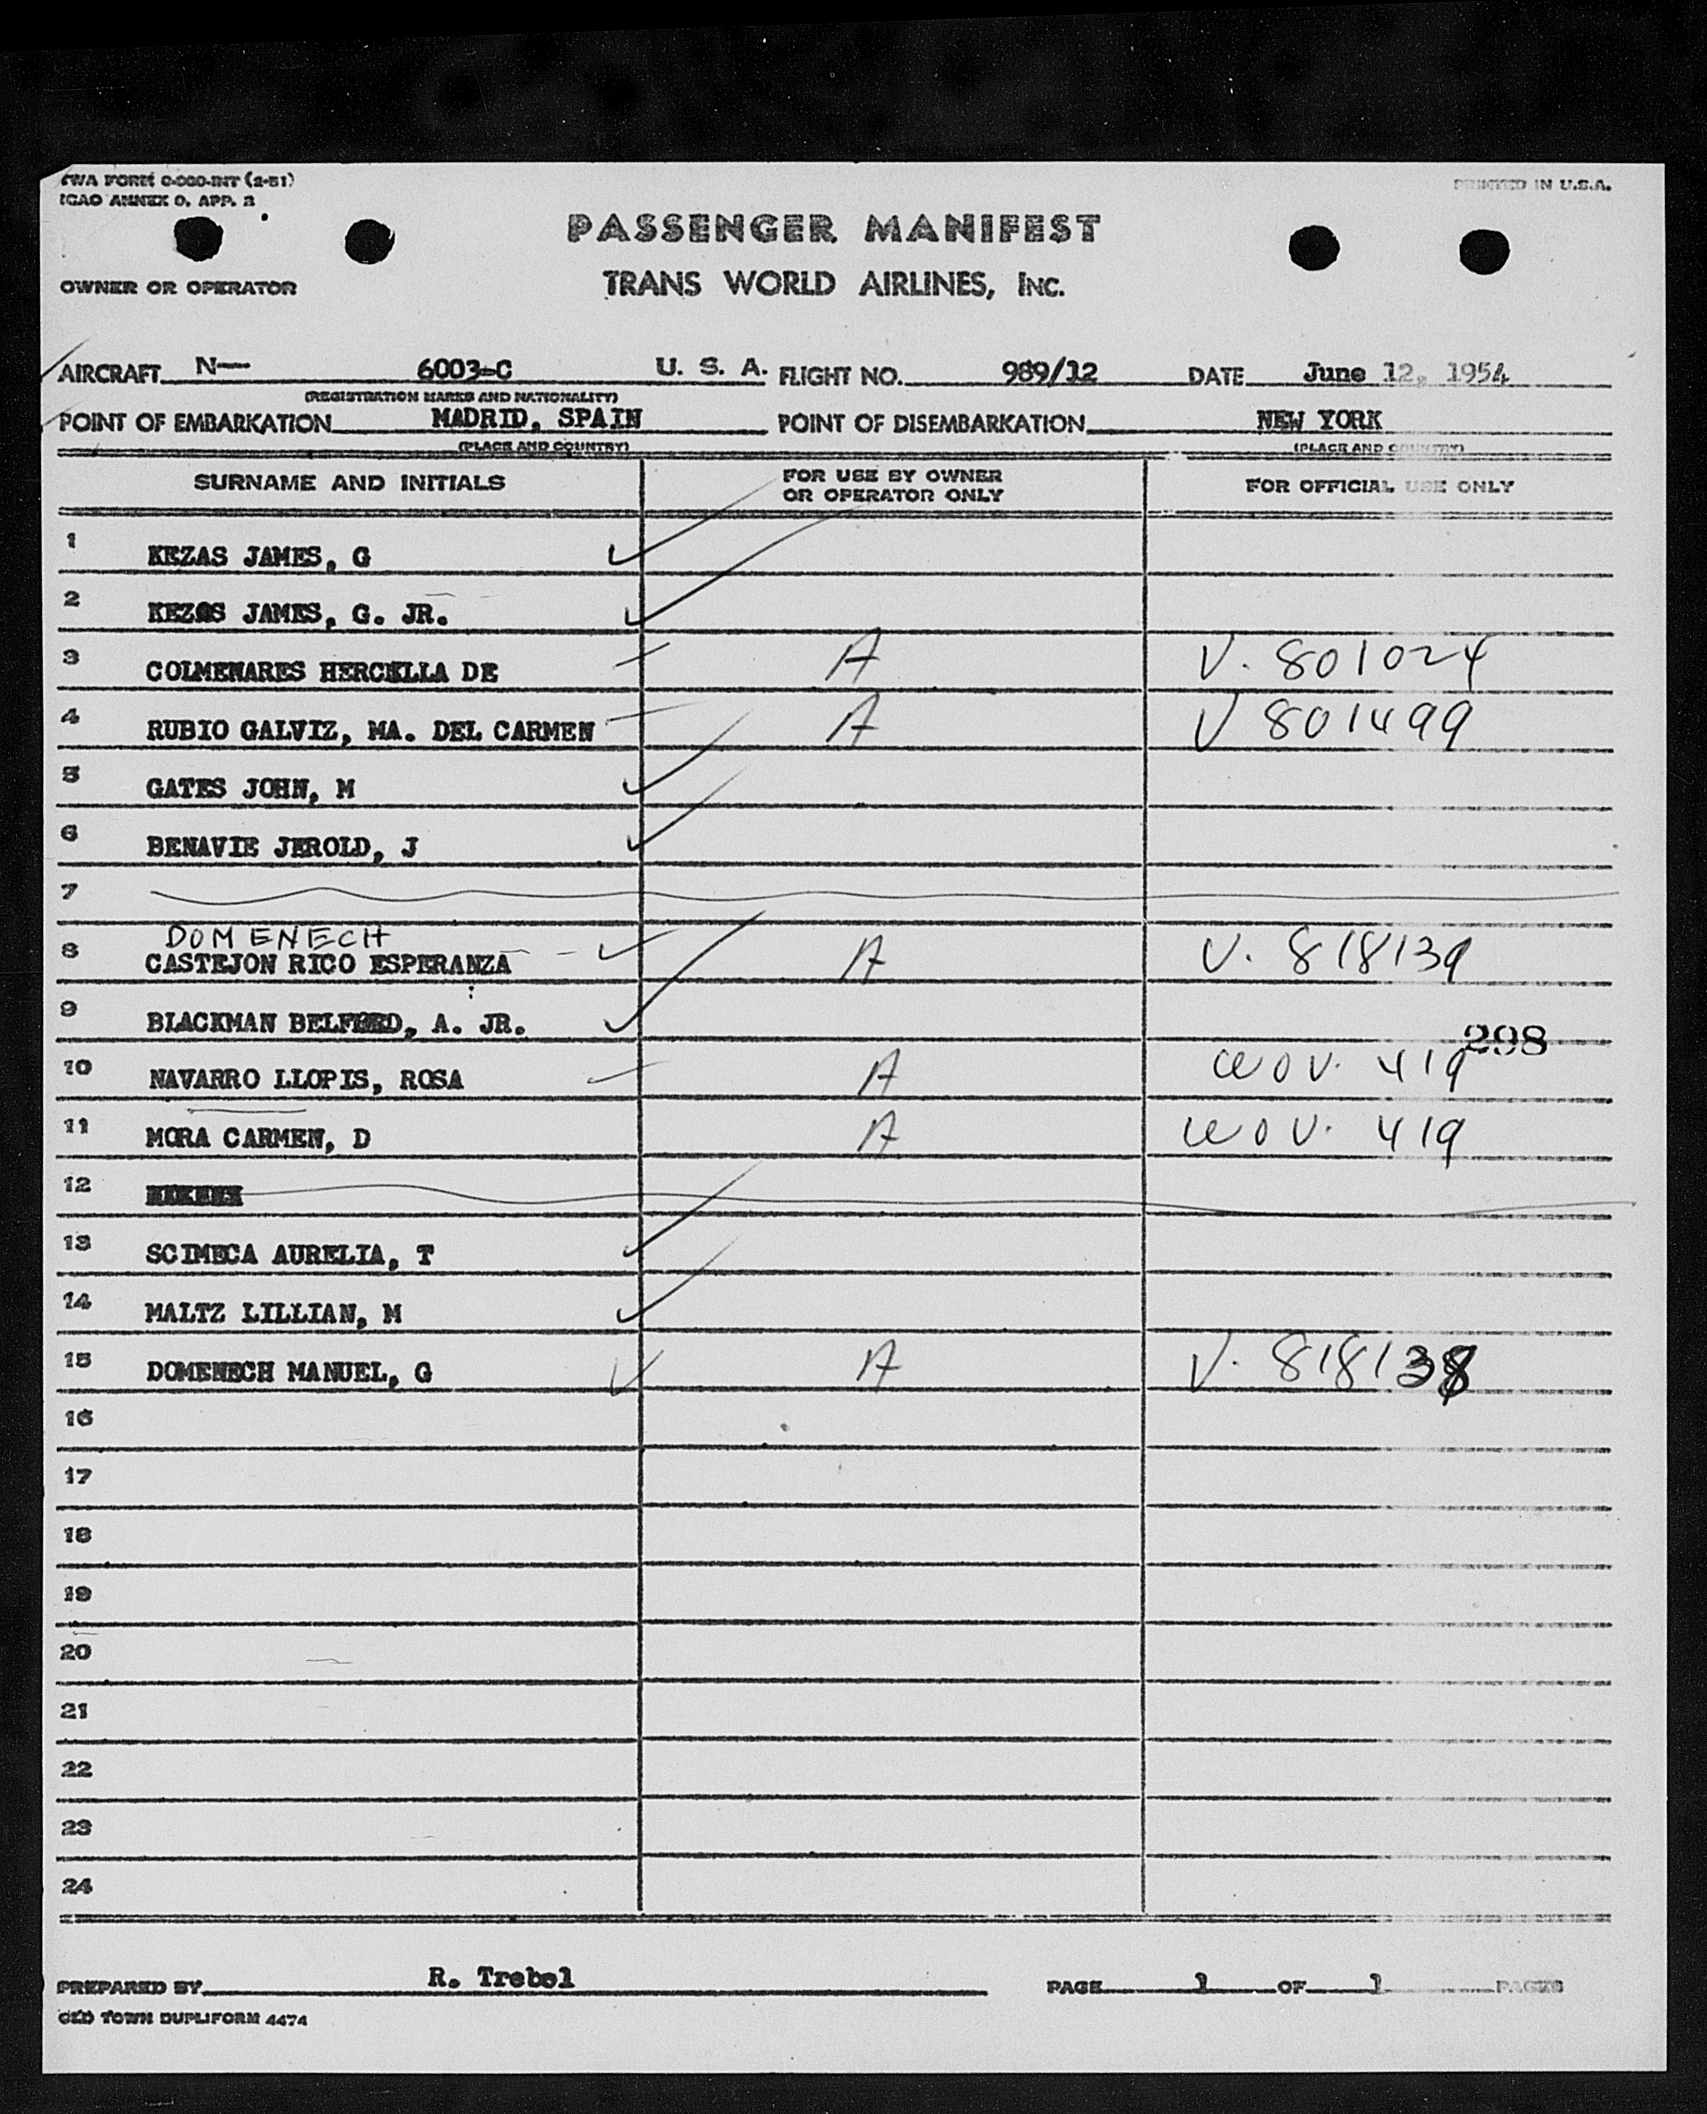 TWA FORM
(2-51)
PRINTED IN U.S.A.
ICAO ANNEX 9, APP. 2
PASSENGER MANIFEST
OWNER OR OPERATOR
TRANS WORLD AIRLINES, INC.
AIRCRAFT N— 6003-C U. S. A. FLIGHT NO. 989/12 DATE June 12, 1954
(REGISTRATION MARKS AND NATIONALITY)
POINT OF EMBARKATION MADRID, SPAIN POINT OF DISEMBARKATION NEW YORK
(PLACE AND COUNTRY) (PLACE AND COUNTRY)
SURNAME AND INITIALS FOR USE BY OWNER OR OPERATOR ONLY FOR OFFICIAL USE ONLY
1 KEZAS JAMES, G
2 KEZOS JAMES, G. JR.
3 COLMENARES HERCELLA DE A V. 801024
4 RUBIO GALVIZ, MA. DEL CARMEN A V 801499
5 GATES JOHN, M
6 BENAVIE JEROLD, J
7
DOMENECH
8 CASTEJON RICO ESPERANZA A V. 818139
9 BLACKMAN A. JR.
298
10 NAVARRO LLOPIS, ROSA A WOV. 419
11 MORA CARMEN, D A WOV. 419
12
13 SCIMECA AURELIA, T
14 MALTZ LILLIAN, M
15 DOMENECH MANUEL, G A V. 818138
16
17
18
19
20
21
22
23
24
PREPARED BY R. Trebol PAGE 1 OF 1 PAGES
OLD TOWN DUPLIFORM 4474